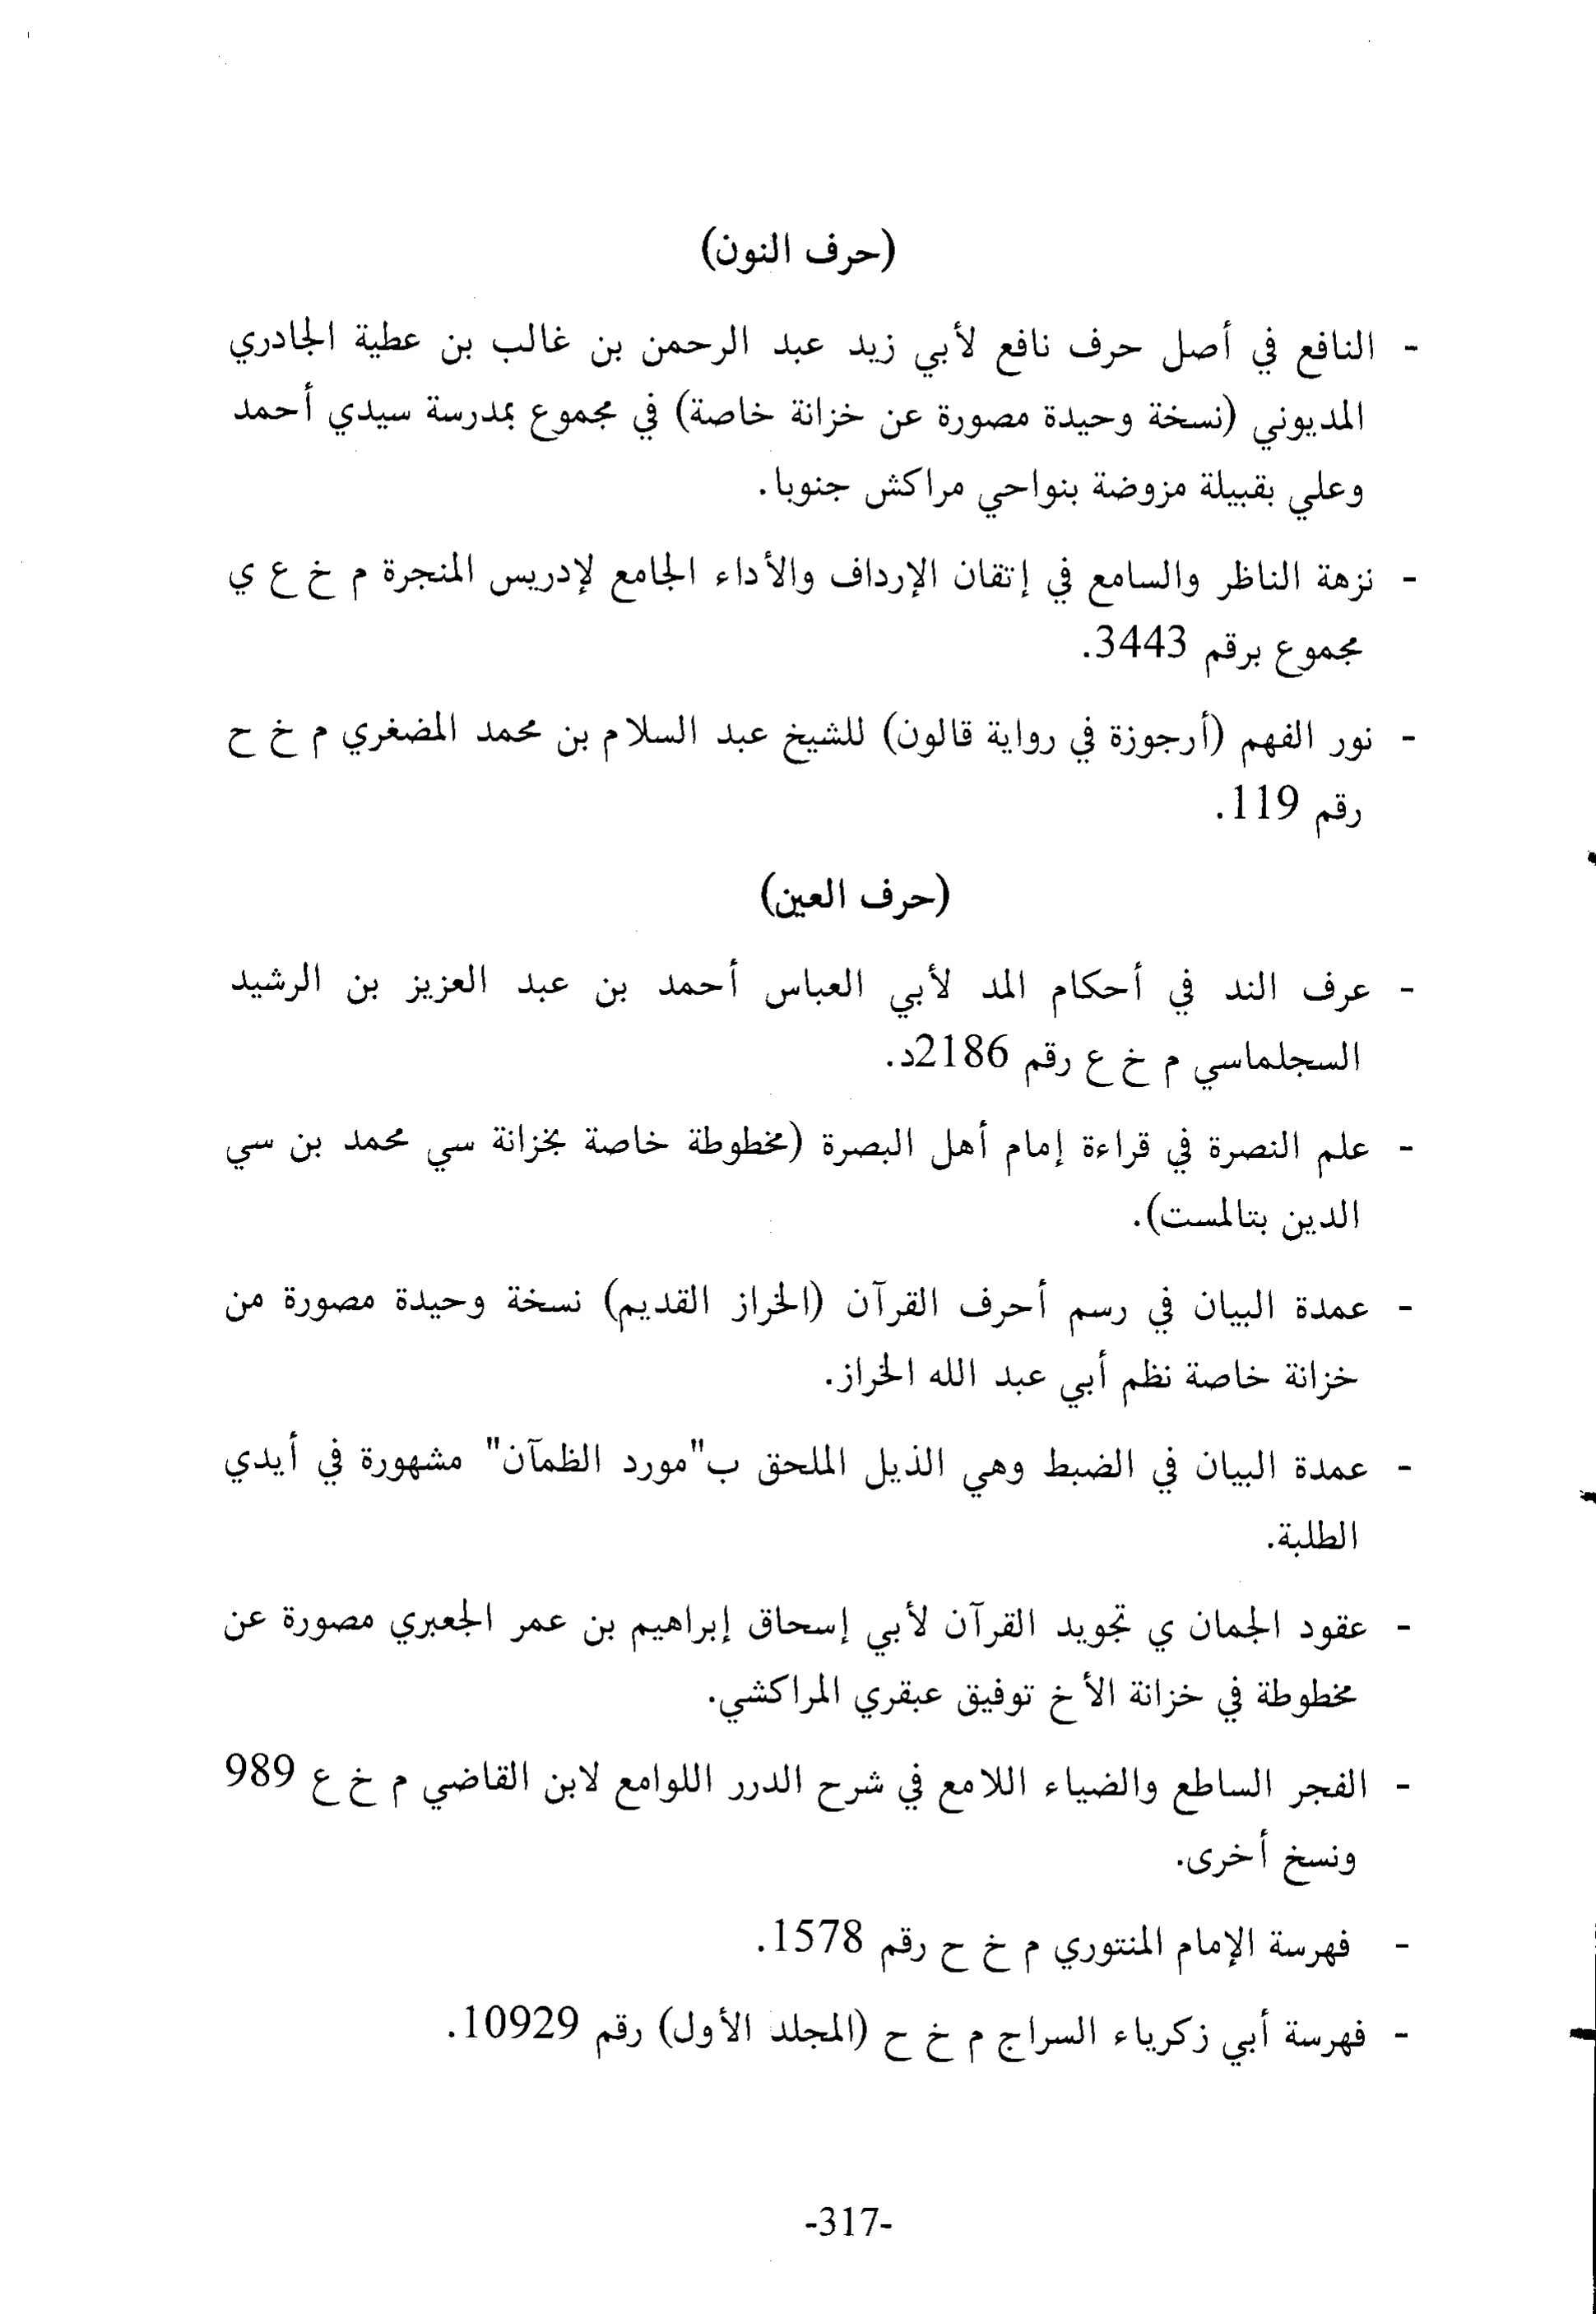 (حرف النون)
- النافع في أصل حرف نافع لأبي زيد عبد الرحمن بن غالب بن عطية الجادري
المديوني (نسخة وحيدة مصورة عن خزانة خاصة) في مجموع بمدرسة سيدي أحمد
وعلي بقبيلة مزوضة بنواحي مراكش جنوبا.
- نزهة الناظر والسامع في إتقان الإرداف والأداء الجامع لإدريس المنجرة م خ ع ي
مجموع برقم 3443.
- نور الفهم (أرجوزة في رواية قالون) للشيخ عبد السلام بن محمد المضغري م خ ح
رقم 119.
(حرف العين)
- عرف الند في أحكام المد لأبي العباس أحمد بن عبد العزيز بن الرشيد
السجلماسي م خ ع رقم 2186د.
- علم النصرة في قراءة إمام أهل البصرة (مخطوطة خاصة بخزانة سي محمد بن سي
الدين بتالمست).
- عمدة البيان في رسم أحرف القرآن (الخراز القديم) نسخة وحيدة مصورة من
خزانة خاصة نظم أبي عبد الله الخراز.
- عمدة البيان في الضبط وهي الذيل الملحق ب"مورد الظمآن" مشهورة في أيدي
الطلبة.
- عقود الجمان ي تجويد القرآن لأبي إسحاق إبراهيم بن عمر الجعبري مصورة عن
مخطوطة في خزانة الأخ توفيق عبقري المراكشي.
- الفجر الساطع والضياء اللامع في شرح الدرر اللوامع لابن القاضي م خ ع 989
ونسخ أخرى.
- فهرسة الإمام المنتوري م خ ح رقم 1578.
- فهرسة أبي زكرياء السراج م خ ح (المجلد الأول) رقم 10929.
-317-